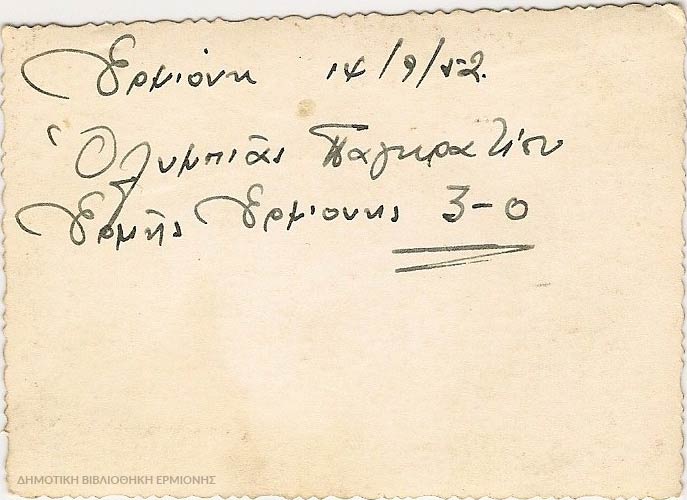 Ερμιόνη 14/9/52.
Ὀλυμπιάς Παγκρατίου
Ερμής Ερμιόνης 3-0
ΔΗΜΟΤΙΚΗ ΒΙΒΛΙΟΘΗΚΗ ΕΡΜΙΟΝΗΣ